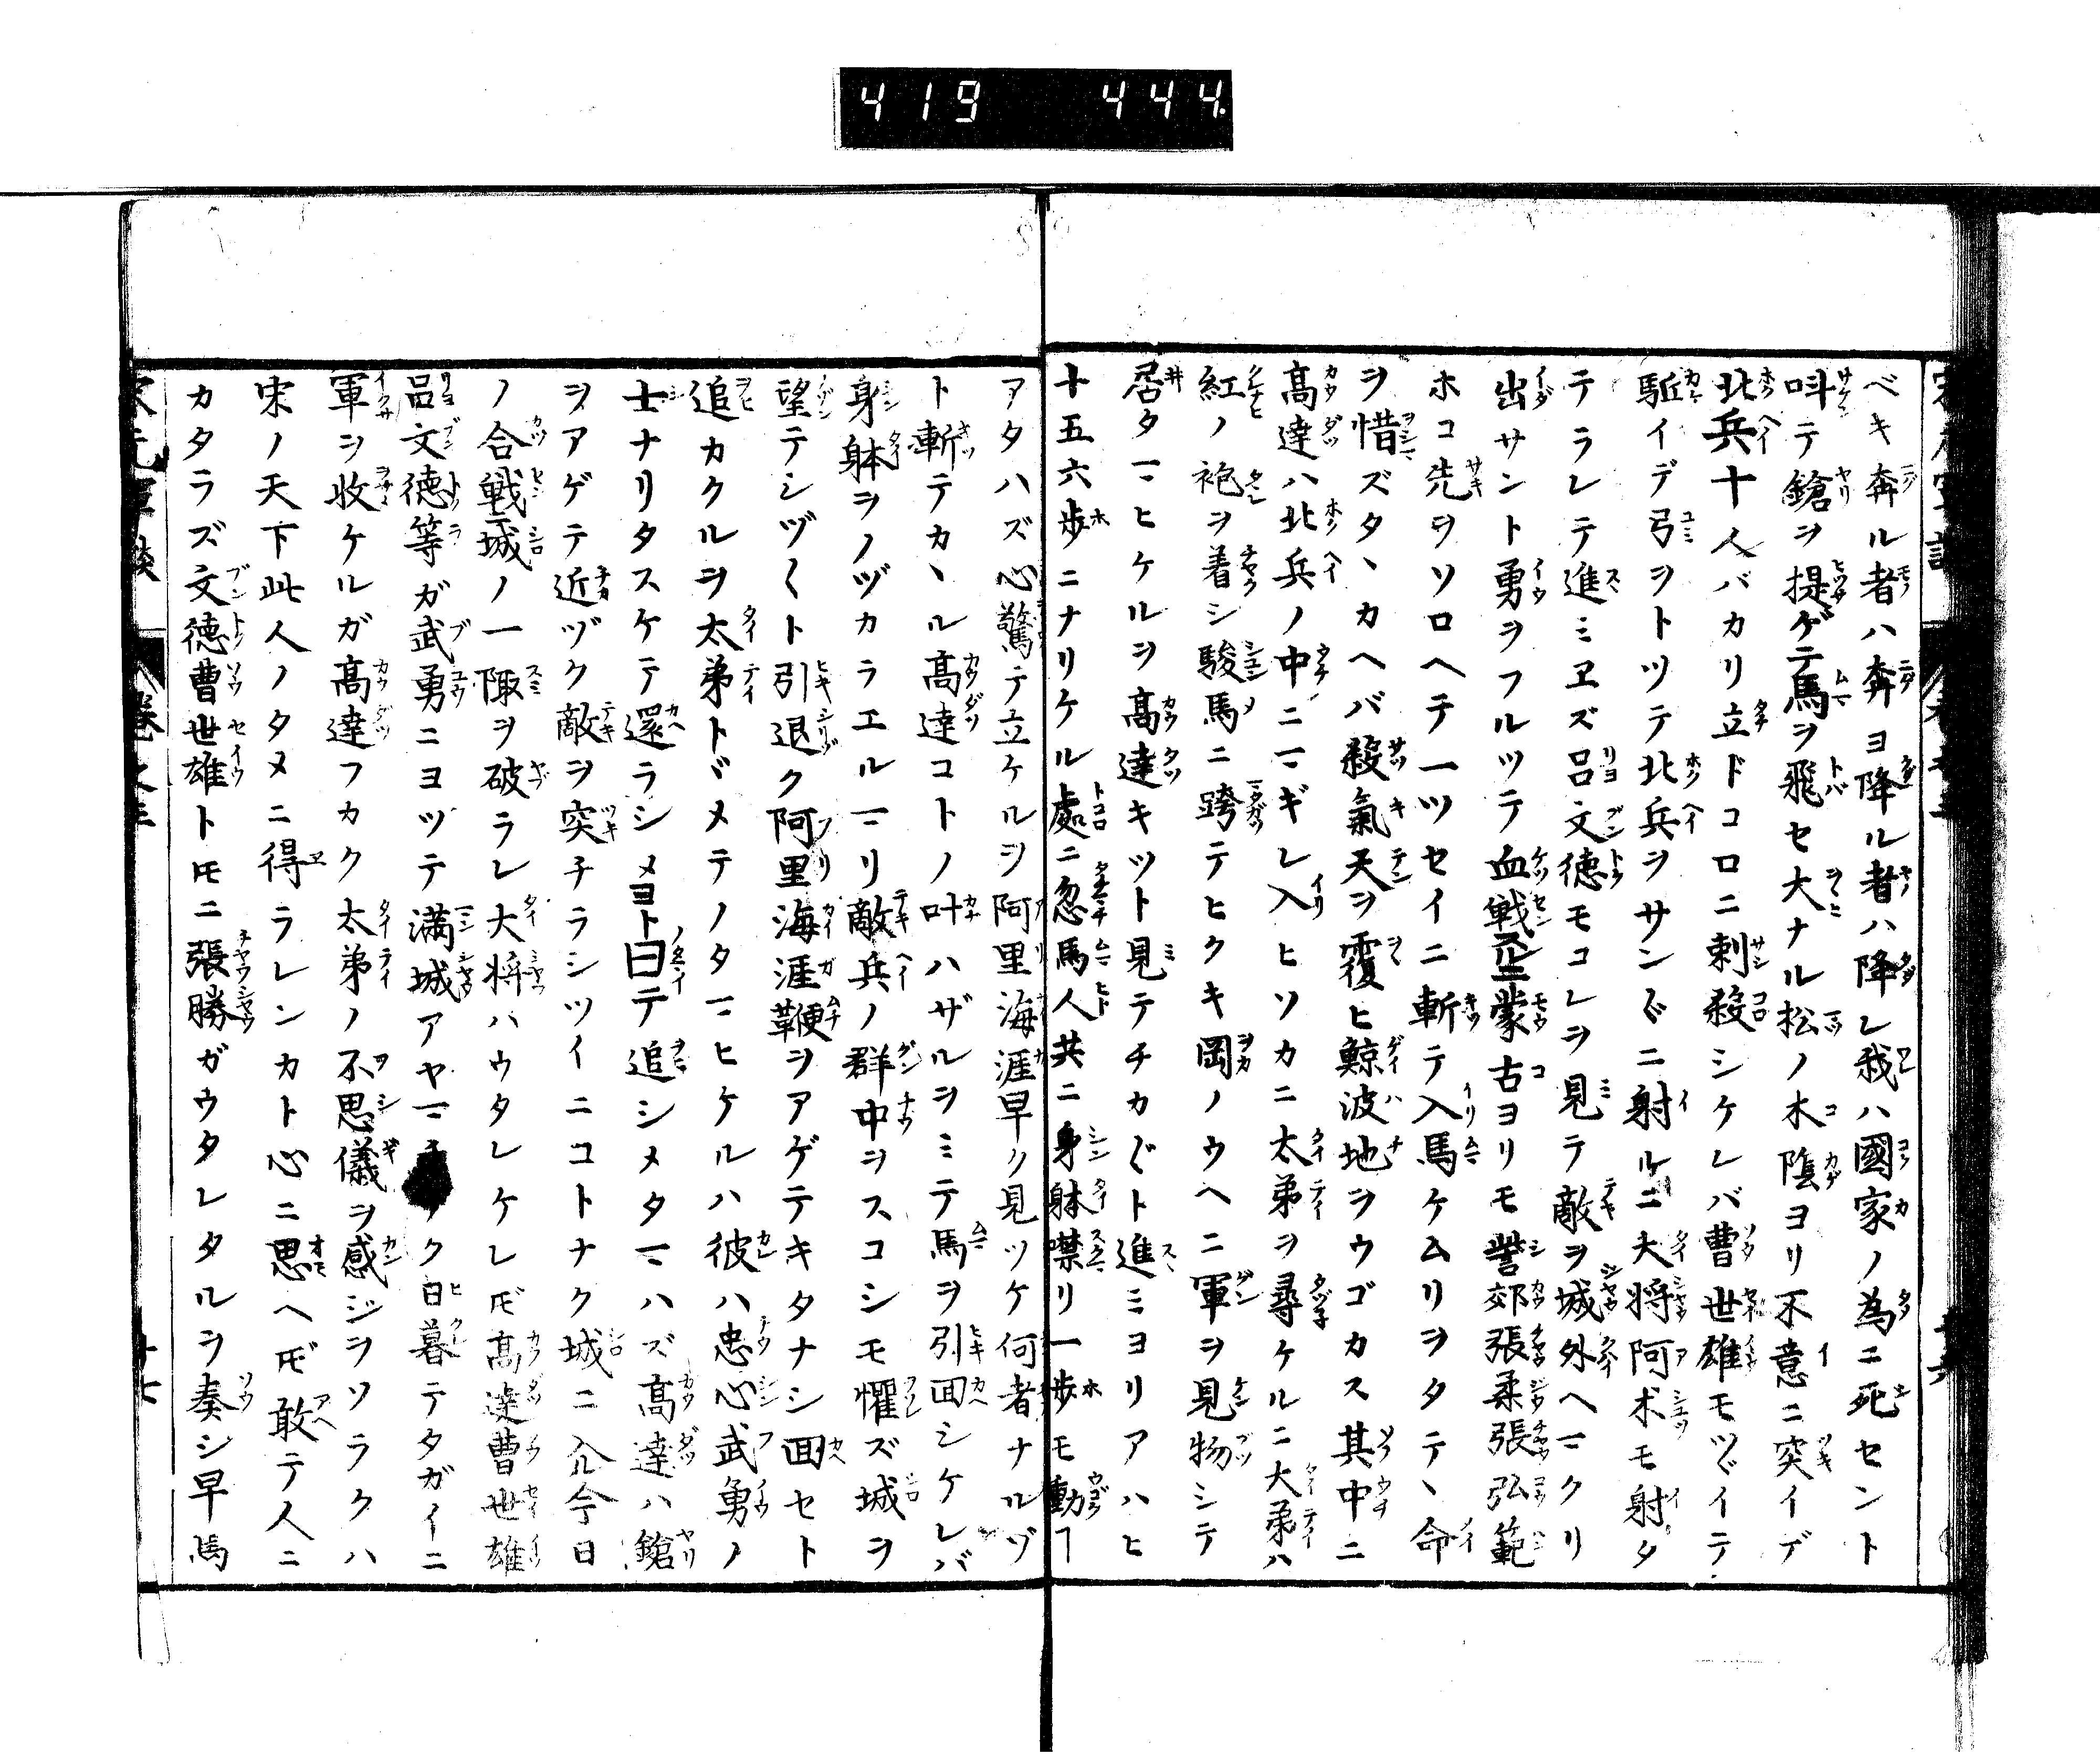 419 444
ベキ奔ル者ハ奔ヨ降ル者ハ降レ我ハ國家ノ為ニ死セント
呌テ鎗ヲ提ゲテ馬ヲ飛セ大ナル松ノ木陰ヨリ不意ニ突イデ
北兵十人バカリ立ドコロニ刺殺シケレバ曹世雄モツヾイテ
駈イデ弓ヲトツテ北兵ヲサンヾニ射ルニ大将阿朮モ射タ
テラレテ進ミヱズ呂文徳モコレヲ見テ敵ヲ城外ヘマクリ
出サント勇ヲフルツテ血戦ス蒙古ヨリモ訾郊張柔張弘範
ホコ先ヲソロヘテ一ツセイニ斬テ入馬ケムリヲタテヽ命
ヲ惜ズタヽカヘバ殺氣天ヲ覆ヒ鯨波地ヲウゴカス其中ニ
髙達ハ北兵ノ中ニマギレ入ヒソカニ太弟ヲ尋ケルニ大弟ハ
紅ノ袍ヲ着シ駿馬ニ跨テヒクキ岡ノウヘニ軍ヲ見物シテ
居タマヒケルヲ髙達キツト見テチカヾト進ミヨリアハヒ
十五六歩ニナリケル處ニ忽馬人共ニ身躰噤リ一歩モ動ヿ
アタハズ心驚テ立ケルヲ阿里海涯早ク見ツケ何者ナルゾ
ト斬テカヽル髙達コトノ叶ハザルヲミテ馬ヲ引囬シケレバ
身躰ヲノヅカラエルマリ敵兵ノ群中ヲスコシモ懼ズ城ヲ
望テシヅ〳〵ト引退ク阿里海涯鞭ヲアゲテキタナシ囬セト
追カクルヲ太弟トヾメテノタマヒケルハ彼ハ忠心武勇ノ
士ナリタスケテ還ラシメヨト曰テ追シメタマハズ髙達ハ鎗
ヲアゲテ近ヅク敵ヲ突チラシツイニコトナク城ニ入ル今日
ノ合戦城ノ一陬ヲ破ラレ大将ハウタレケレ𪜈髙達曹世雄
呂文徳等ガ武勇ニヨツテ満城アヤマチナク日暮テタガイニ
軍ヲ收ケルガ髙達フカク太弟ノ不思儀ヲ感ジヲソラクハ
宋ノ天下此人ノタメニ得ラレンカト心ニ思ヘ𪜈敢テ人ニ
カタラズ文徳曹世雄ト𪜈ニ張勝ガウタレタルヲ奏シ早馬
宋元軍談 卷之三 十七